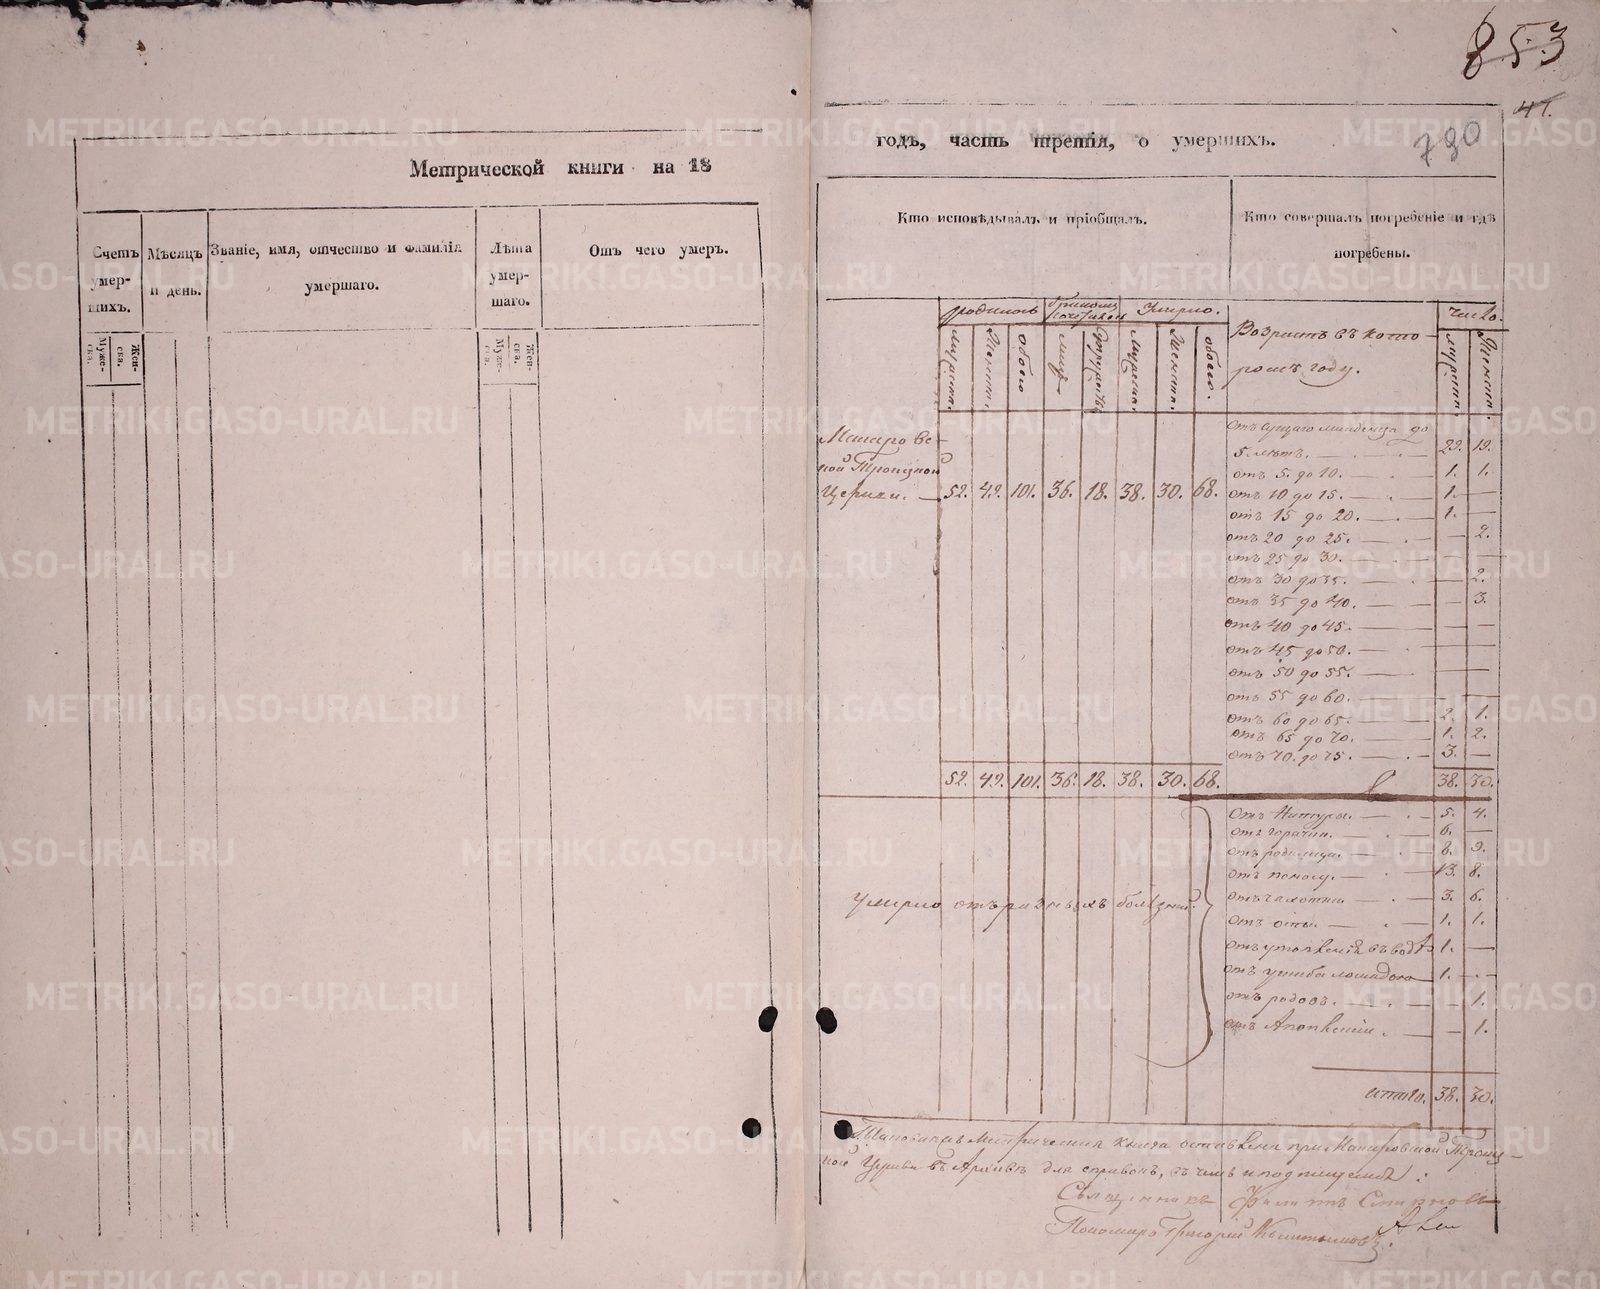 853
41.
790
Метрической книги на 18
годъ, часть третія, о умершихъ.
Счетъ умер-шихъ.
Мѣсяцъ и день.
Званіе, имя, отчество и фамилія умершаго.
Лѣта умер-шаго.
Отъ чего умеръ.
Муже-ска.
Жен-ска.
Муже-ска.
Жен-ска.
Кто исповѣдывалъ и пріобщалъ.
Кто совершалъ погребеніе и гдѣ погребены.
родилось
Умерло.
Возрастъ въ кото-
ромъ году.
число.
мужеска.
женска.
обоего
мужеска.
женска.
обоего.
мужеска.
женска.
ной Троицкой
Церкви. — 52. 49. 101. 36. 18. 38. 30. 68.
отъ сущаго младенца до
5 лѣтъ. 29. 19.
отъ 5. до 10. 1. 1.
отъ 10 до 15. 1. —
отъ 15 до 20. 1. —
отъ 20 до 25. — 2.
отъ 25 до 30. — —
отъ 30 до 35. — 2.
отъ 35 до 40. — 3.
отъ 40 до 45. — —
отъ 45 до 50. — —
отъ 50 до 55. — —
отъ 55 до 60. — —
отъ 60 до 65. 2. 1.
отъ 65 до 70. 1. 2.
отъ 70. до 75. 3. —
52. 49. 101. 36. 18. 38. 30. 68. 38. 30.
Умерло отъ разныхъ болѣзней.
отъ Натуры. 5. 4.
отъ горячки. 6. —
отъ родимца. 8. 9.
отъ поносу. 13. 8.
отъ чахотки 3. 6.
отъ оспы. 1. 1.
отъ утопленія въ водѣ 1. —
отъ ушиба лошадью 1. —
отъ родовъ. — 1.
отъ Апоплексіи. — 1.
итого. 38. 30.
Таковая Метрическая книга оставлена при
ной Церкви въ Архивѣ для справокъ, въ чемъ и подпишемся:
Священникъ Филиппъ Смирновъ
Пономарь Григорій
METRIKI.GASO-URAL.RU